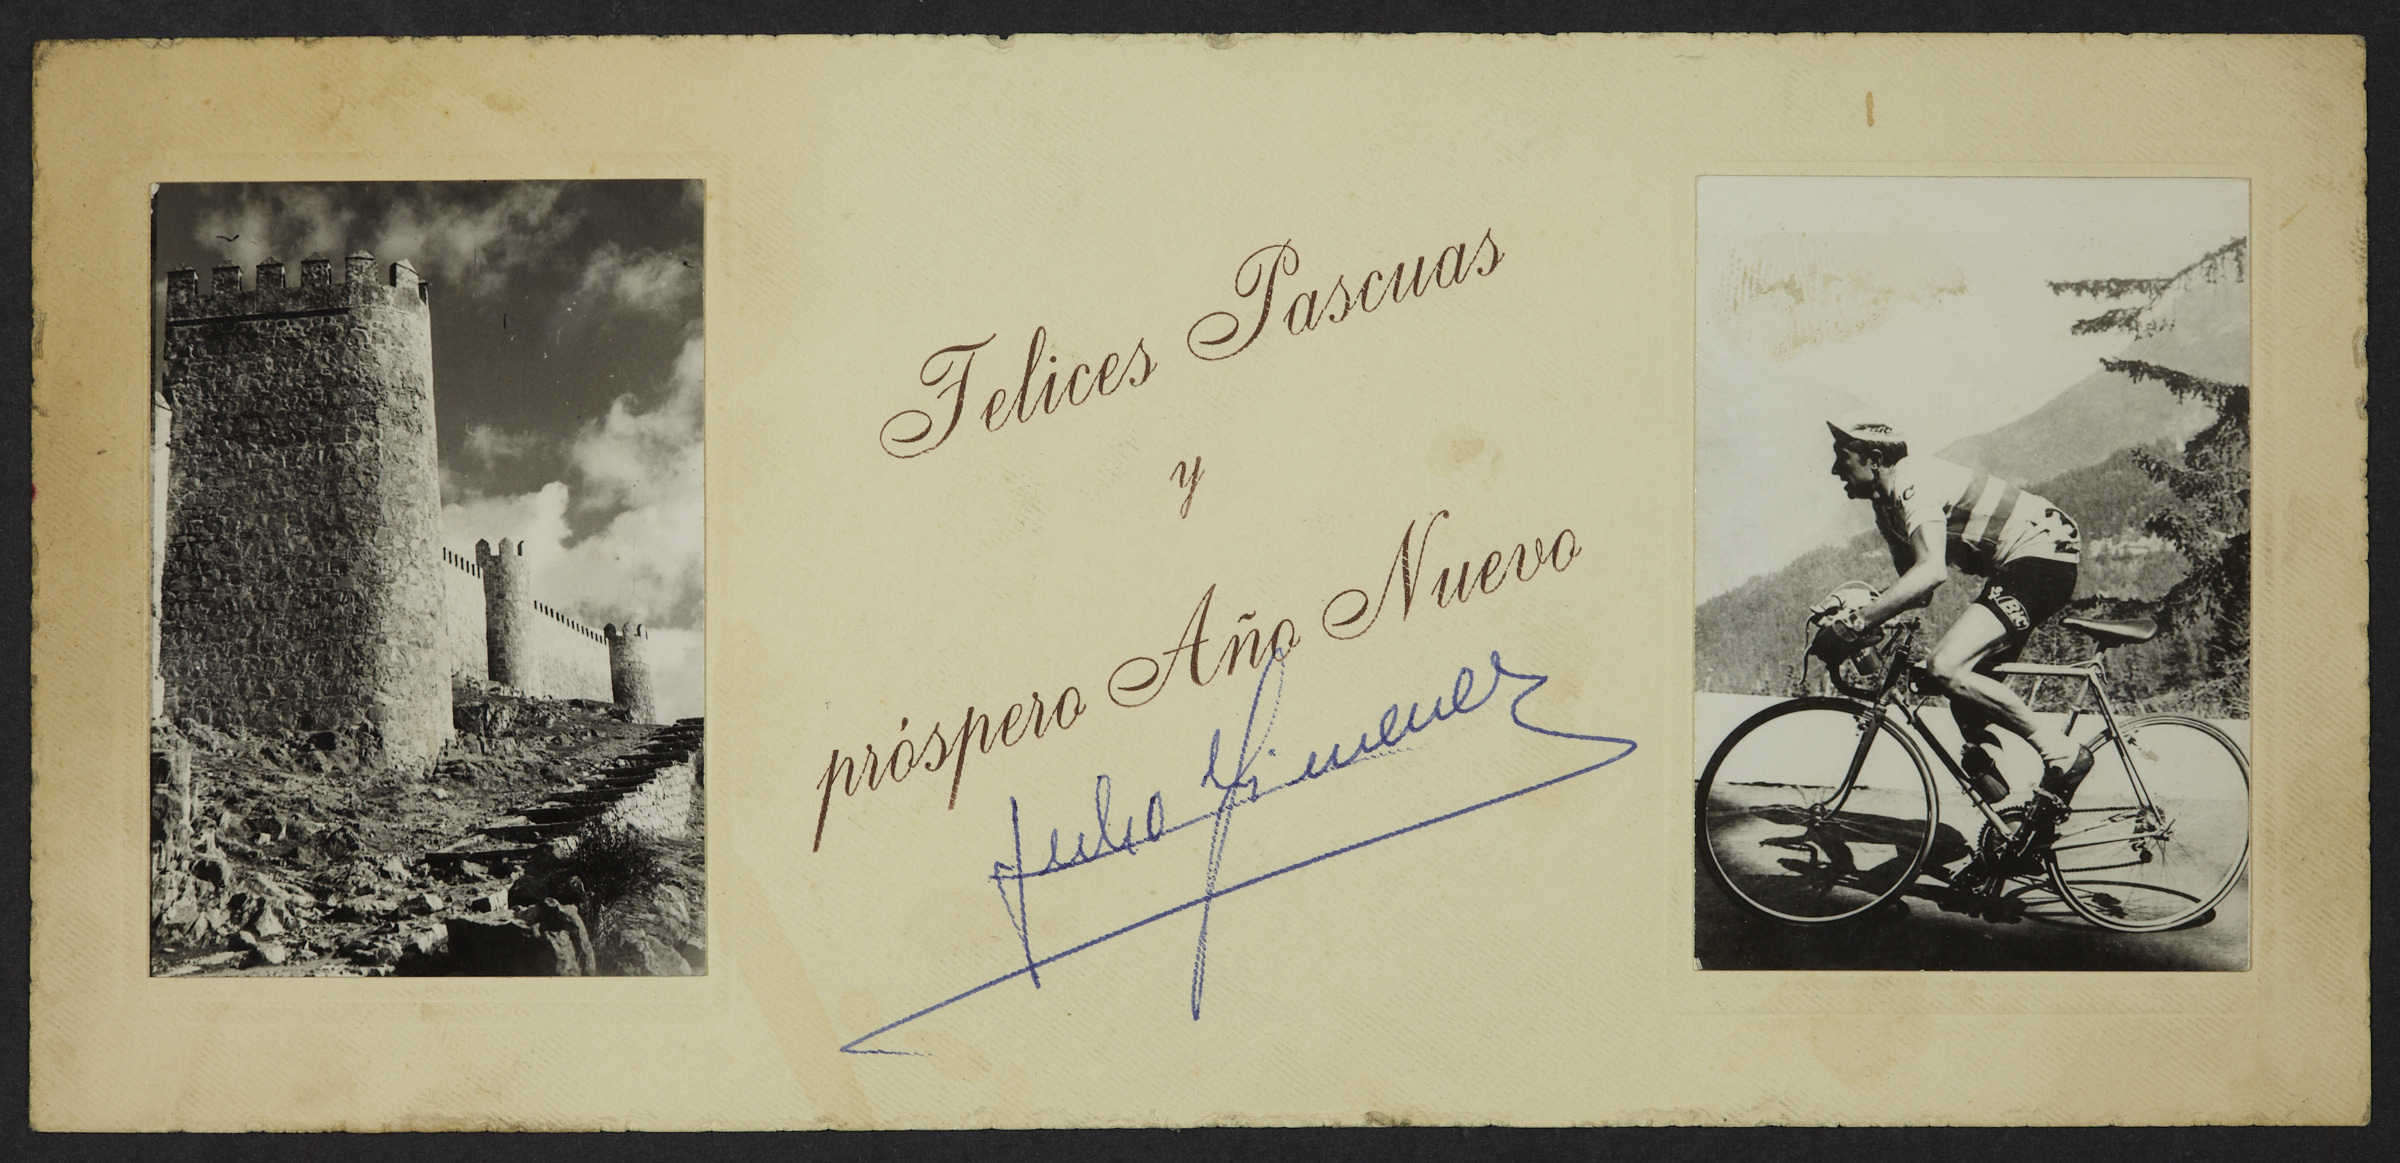 Felices Pascuas
y
próspero Año Nuevo
Julio Jimenez
BIC